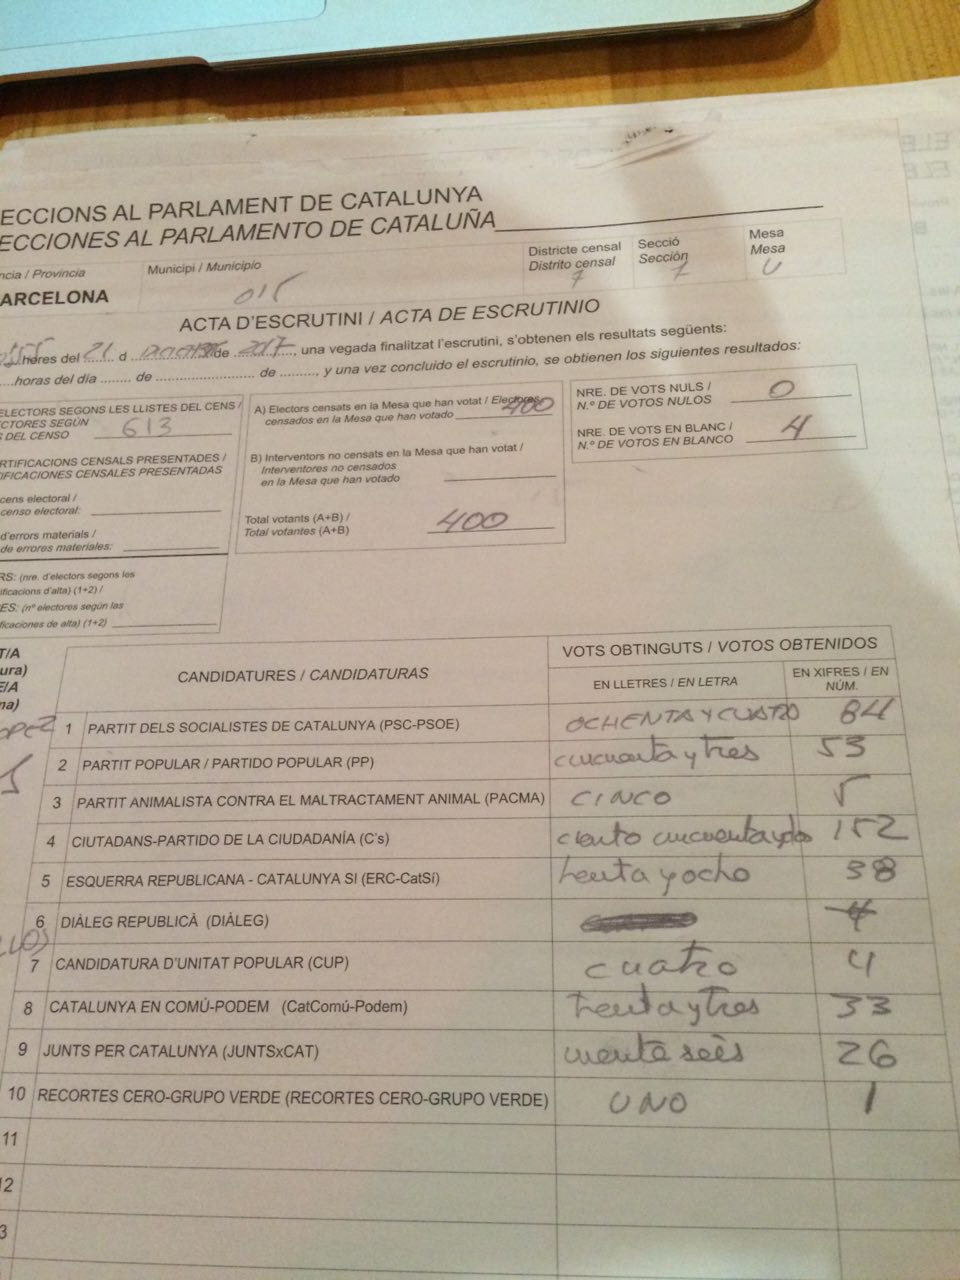 ECCIONS AL PARLAMENT DE CATALUNYA
ECCIONES AL PARLAMENTO DE CATALUÑA
ncia / Provincia
ARCELONA
Municipi / Municipio
015
Districte censal
Distrito censal
7
Secció
Sección
7
Mesa
Mesa
U
ACTA D'ESCRUTINI / ACTA DE ESCRUTINIO
hores del 21 d de 2017, una vegada finalitzat l'escrutini, s'obtenen els resultats següents:
horas del día ........ de ............................ de ........., y una vez concluido el escrutinio, se obtienen los siguientes resultados:
ELECTORS SEGONS LES LLISTES DEL CENS /
CTORES SEGÚN
S DEL CENSO 613
RTIFICACIONS CENSALS PRESENTADES /
IFICACIONES CENSALES PRESENTADAS
cens electoral /
censo electoral:
d'errors materials /
de errores materiales:
RS: (nre. d'electors segons les
ificacions d'alta) (1+2) /
ES: (nº electores según las
ificaciones de alta) (1+2)
A) Electors censats en la Mesa que han votat / Electores
censados en la Mesa que han votado 400
B) Interventors no censats en la Mesa que han votat /
Interventores no censados
en la Mesa que han votado
Total votants (A+B) /
Total votantes (A+B) 400
NRE. DE VOTS NULS /
N.º DE VOTOS NULOS 0
NRE. DE VOTS EN BLANC /
N.º DE VOTOS EN BLANCO 4
T/A
ura)
E/A
na)
CANDIDATURES / CANDIDATURAS
VOTS OBTINGUTS / VOTOS OBTENIDOS
EN LLETRES / EN LETRA
EN XIFRES / EN
NÚM.
OPEZ
1 PARTIT DELS SOCIALISTES DE CATALUNYA (PSC-PSOE) OCHENTA Y CUATRO 84
2 PARTIT POPULAR / PARTIDO POPULAR (PP) cincuenta y tres 53
3 PARTIT ANIMALISTA CONTRA EL MALTRACTAMENT ANIMAL (PACMA) CINCO 5
4 CIUTADANS-PARTIDO DE LA CIUDADANÍA (C's) ciento cincuenta y dos 152
5 ESQUERRA REPUBLICANA - CATALUNYA SI (ERC-CatSí) treinta y ocho 38
6 DIÀLEG REPUBLICÀ (DIÀLEG) 4
7 CANDIDATURA D'UNITAT POPULAR (CUP) cuatro 4
8 CATALUNYA EN COMÚ-PODEM (CatComú-Podem) treinta y tres 33
9 JUNTS PER CATALUNYA (JUNTSxCAT) seis 26
10 RECORTES CERO-GRUPO VERDE (RECORTES CERO-GRUPO VERDE) UNO 1
11
12
3